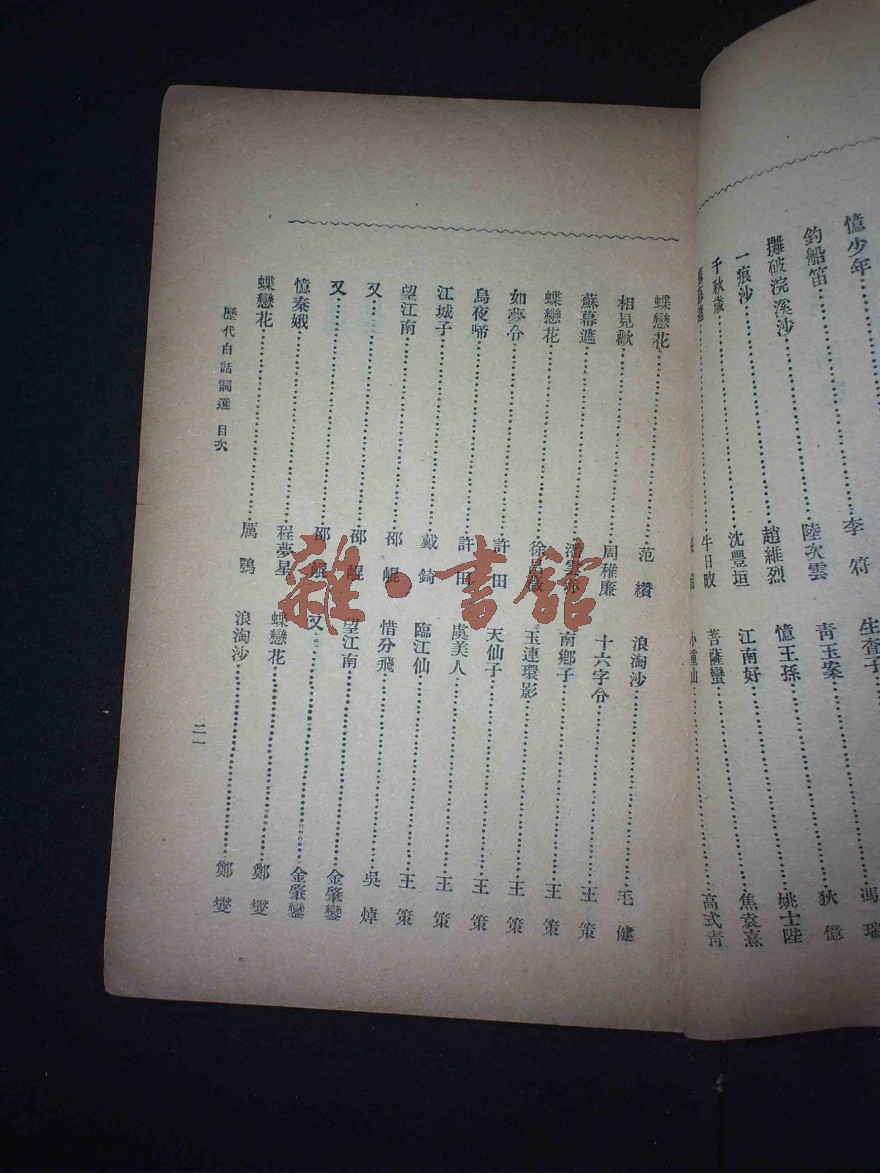 憶少年……李符
釣船笛……陸次雲
攤破浣溪沙……趙維烈
一痕沙……沈豐垣
千秋歲……牛日
生查子……馮瑞
青玉案……狄億
憶王孫……姚士陛
江南好……焦袁熹
菩薩蠻……高式青
蝶戀花……范纘
相見歡……周稚廉
蘇幕遮
蝶戀花……徐
如夢令……許田
烏夜啼……許田
江城子……戴錡
望江南……邵錕
又……邵錕
又……邵錕
憶秦娥……程夢星
蝶戀花……厲鶚
浪淘沙……毛健
十六字令……王策
南鄉子……王策
玉連環影……王策
天仙子……王策
虞美人……王策
臨江仙……王策
惜分飛……吳焯
望江南……金肇鑾
又……金肇鑾
蝶戀花……鄭燮
浪淘沙……鄭燮
歷代白話詞選 目次
二一
雜·書館